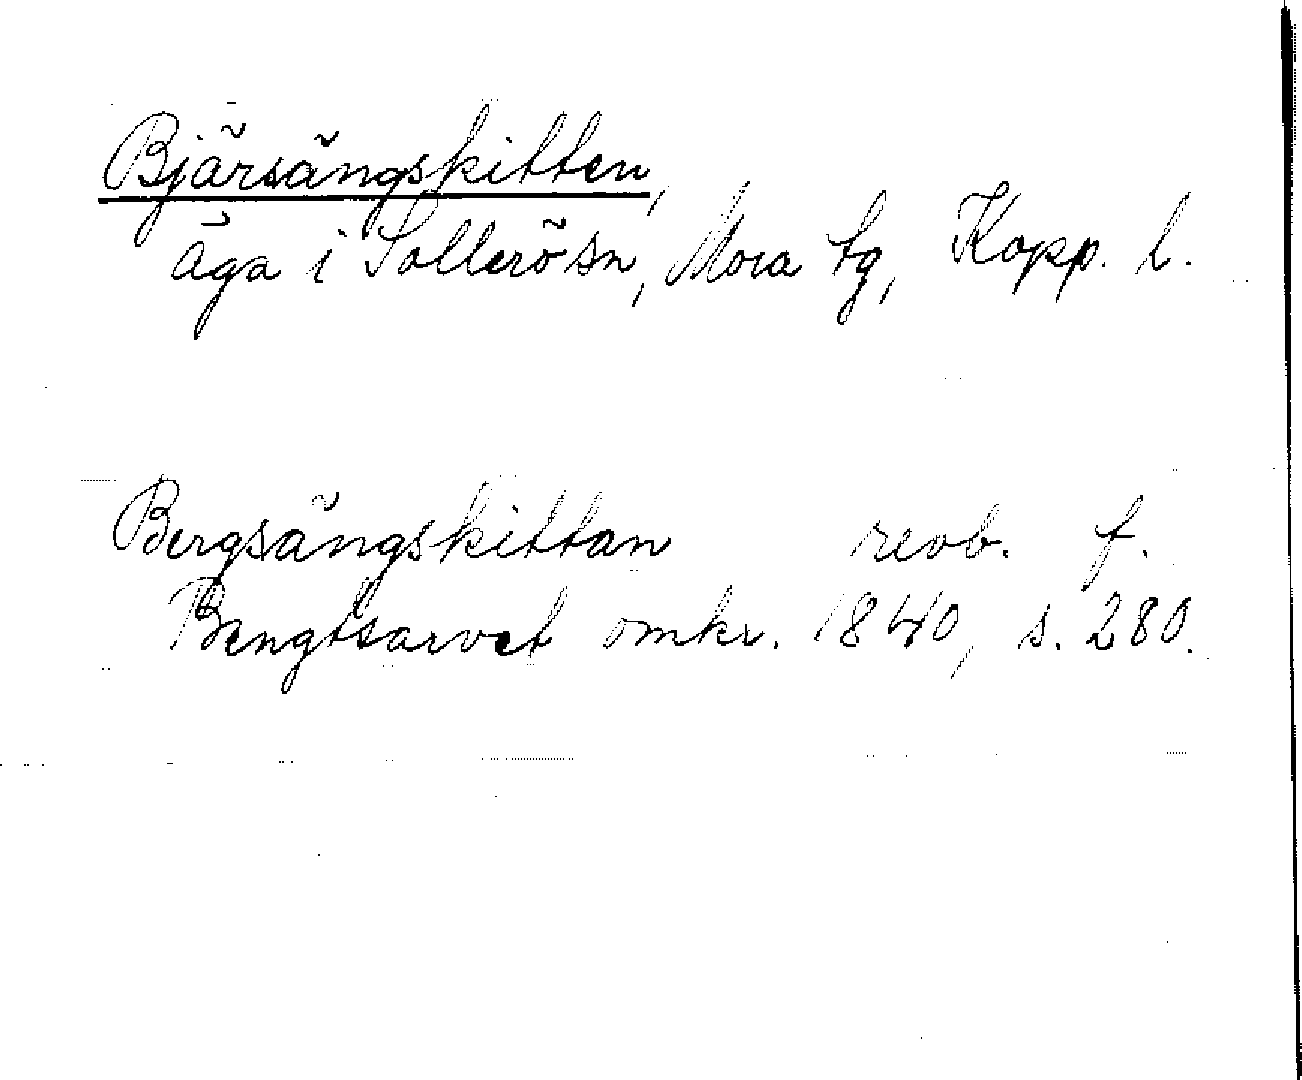 Bjärsängskitten,
äga i Sollerö sn, Mora tg, Kopp. l.
Bergsängskittan revb. f.
Bengtsarvet omkr. 1840, s. 280.